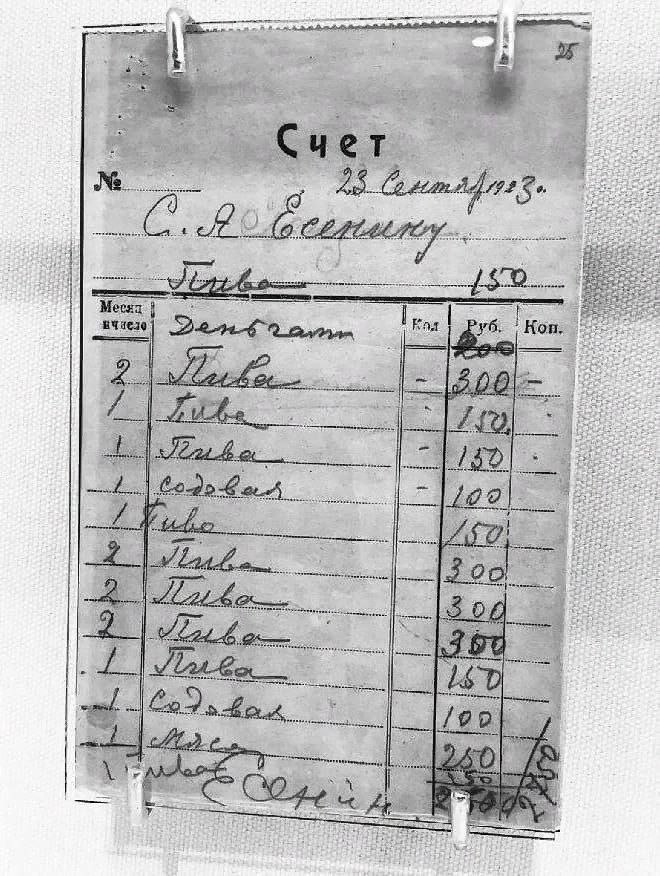 25
Счет
№ 23 Сентяр 1923 г.
С. А Есенину
Пива 150
Месяц и число Деньгами Кол Руб. Коп.
200
2 Пива - 300 -
1 Пива - 150
1 Пива - 150
1 содовая - 100
1 Пиво 150
2 Пива 300
2 Пива 300
2 Пива 300
1 Пива 150
1 Содовая 100
1 Мясо 250
1 Пива 150
Есенин